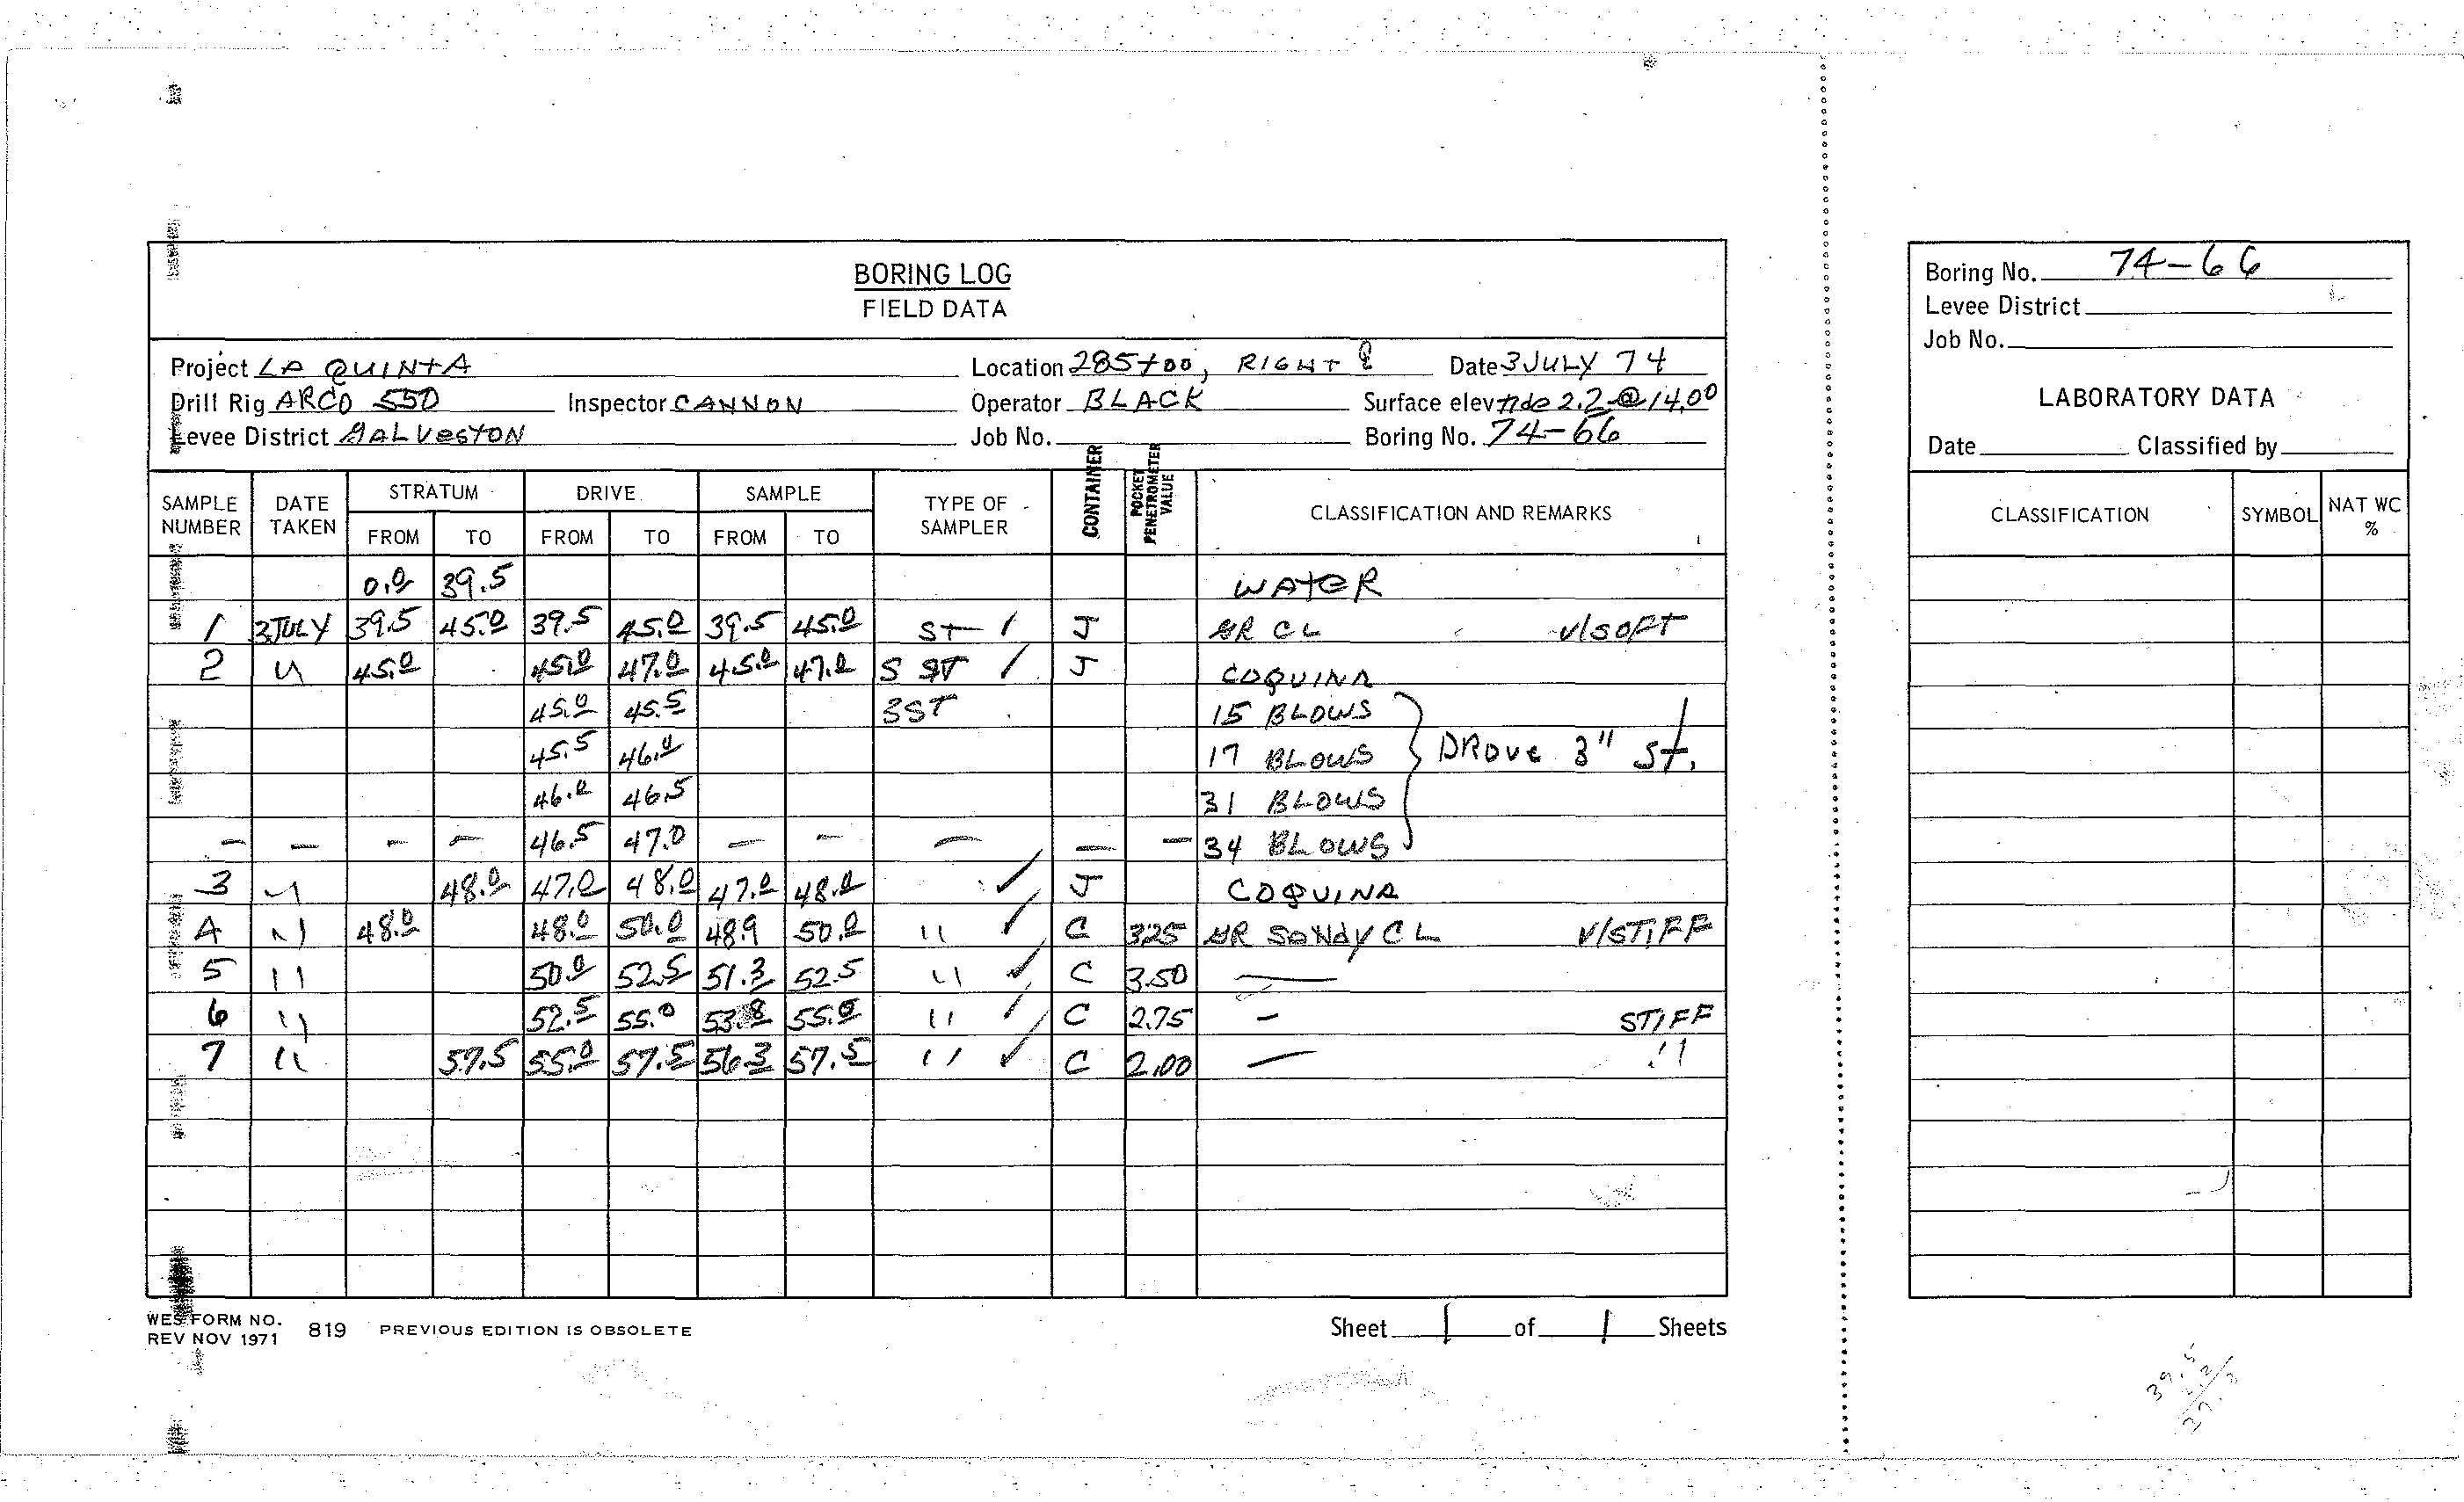 BORING LOG
FIELD DATA
Project LA QUINTA Location 285+00, RIGHT ℄ Date 3 JULY 74
Drill Rig ARCO 550 Inspector CANNON Operator BLACK Surface elev tide 2.2 @ 14,00
Levee District GALVESTON Job No. Boring No. 74-66
SAMPLE NUMBER DATE TAKEN STRATUM FROM TO DRIVE FROM TO SAMPLE FROM TO TYPE OF SAMPLER CONTAINER POCKET PENETROMETER VALUE CLASSIFICATION AND REMARKS
0.0 39.5 WATER
1 3JULY 39.5 45.0 39.5 45.0 39.5 45.0 ST / J GR CL V/SOFT
2 " 45.0 45.0 47.0 45.0 47.0 S ST / J COQUINA
45.0 45.5 3ST 15 BLOWS
45.5 46.0 17 BLOWS } DROVE 3" St.
46.0 46.5 31 BLOWS
– – – – 46.5 47.0 – – – – – 34 BLOWS
3 " 48.0 47.0 48.0 47.0 48.0 ✓ J COQUINA
4 " 48.0 48.0 50.0 48.9 50.0 " ✓ C 3.25 GR SANDY CL V/STIFF
5 " 50.0 52.5 51.3 52.5 " ✓ C 3.50 —
6 " 52.5 55.0 53.8 55.0 " ✓ C 2.75 – STIFF
7 " 57.5 55.0 57.5 56.3 57.5 " ✓ C 2.00 — "
WES FORM NO. 819 PREVIOUS EDITION IS OBSOLETE
REV NOV 1971
Sheet 1 of 1 Sheets
Boring No. 74-66
Levee District
Job No.
LABORATORY DATA
Date Classified by
CLASSIFICATION SYMBOL NAT WC %
39.5
2.2
37.3